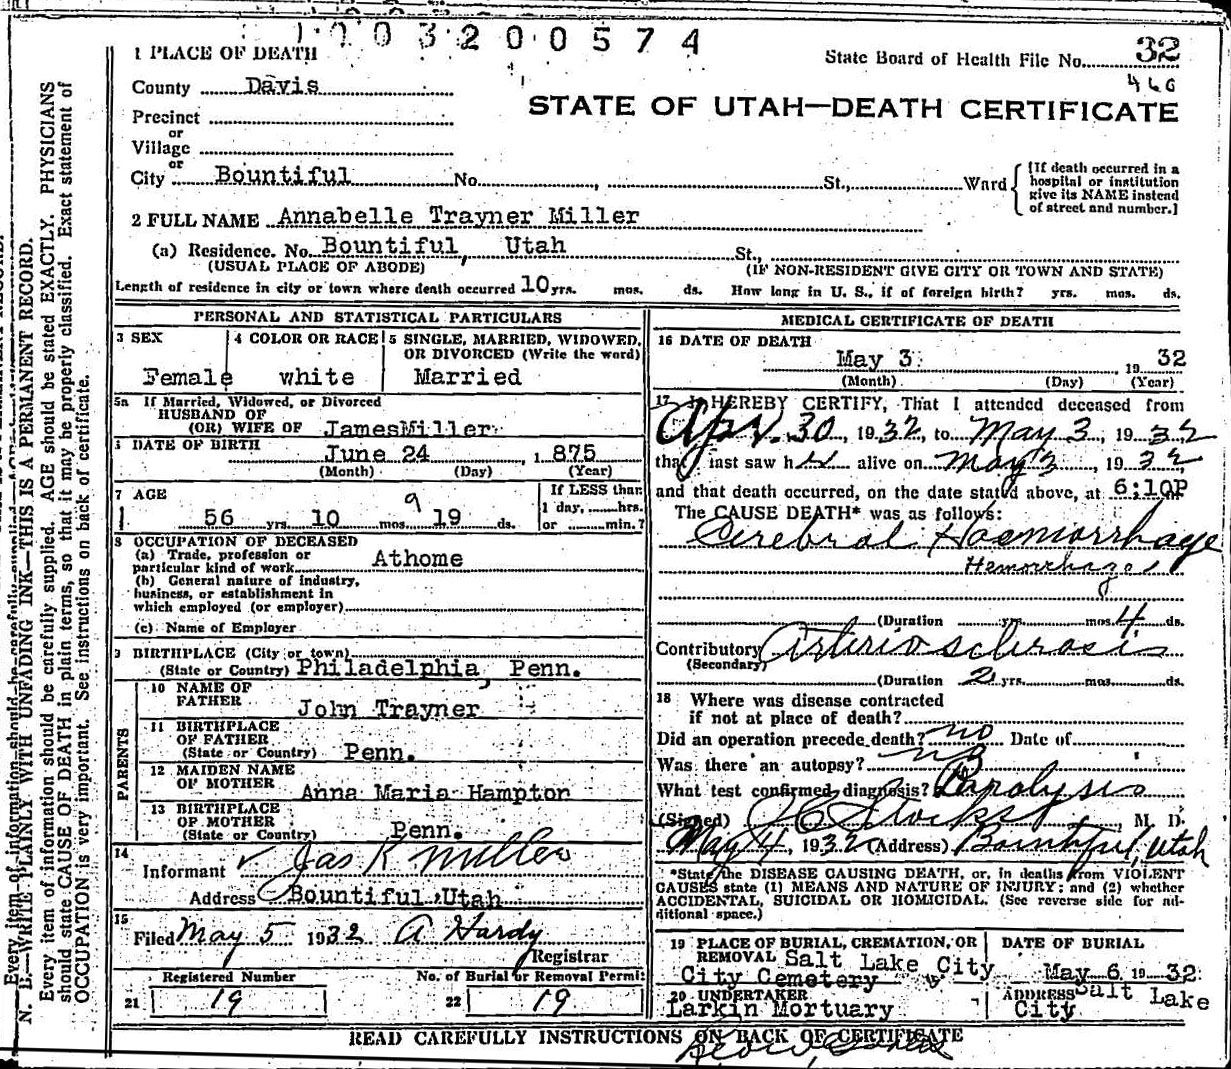 1003200574
1 PLACE OF DEATH
State Board of Health File No. 32
460
County Davis
STATE OF UTAH—DEATH CERTIFICATE
Precinct
or
Village
or
City Bountiful No. , St., Ward
{If death occurred in a hospital or institution give its NAME instead of street and number.]
2 FULL NAME Annabelle Trayner Miller
(a) Residence. No. Bountiful, Utah St.,
(USUAL PLACE OF ABODE) (IF NON-RESIDENT GIVE CITY OR TOWN AND STATE)
Length of residence in city or town where death occurred 10 yrs. mos. ds. How long in U. S., if of foreign birth? yrs. mos. ds.
PERSONAL AND STATISTICAL PARTICULARS
3 SEX
Female
4 COLOR OR RACE
white
5 SINGLE, MARRIED, WIDOWED,
OR DIVORCED (Write the word)
Married
5a If Married, Widowed, or Divorced
HUSBAND OF
(OR) WIFE OF JamesMiller
6 DATE OF BIRTH
June 24 1 875
(Month) (Day) (Year)
7 AGE
9
56 yrs. 10 mos. 19 ds.
If LESS than
1 day, hrs.
or min.?
8 OCCUPATION OF DECEASED
(a) Trade, profession or
particular kind of work Athome
(b) General nature of industry,
business, or establishment in
which employed (or employer)
(c) Name of Employer
9 BIRTHPLACE (City or town)
(State or Country) Philadelphia, Penn.
PARENTS
10 NAME OF
FATHER John Trayner
11 BIRTHPLACE
OF FATHER
(State or Country) Penn.
12 MAIDEN NAME
OF MOTHER Anna Maria Hampton
13 BIRTHPLACE
OF MOTHER
(State or Country) Penn.
14
Informant Jas R Miller
Address Bountiful, Utah
15
Filed May 5 1932 A Hardy
Registrar
Registered Number
21 19
No. of Burial or Removal Permit
22 19
MEDICAL CERTIFICATE OF DEATH
16 DATE OF DEATH
May 3 19 32
(Month) (Day) (Year)
17 I HEREBY CERTIFY, That I attended deceased from
Apr. 30, 1932, to May 3, 1932
that I last saw her alive on May 3, 1932
and that death occurred, on the date stated above, at 6:10P
The CAUSE DEATH* was as follows:
Cerebral Haemorrhage
Hemorrhages
(Duration yrs. mos. 4 ds.
Contributory Arterio sclerosis
(Secondary)
(Duration 2 yrs. mos. ds.
18 Where was disease contracted
if not at place of death?
Did an operation precede death? no Date of
Was there an autopsy? no
What test confirmed diagnosis? Paralysis
(Signed) Stocks, M. D.
May 4, 1932 (Address) Bountiful, Utah
*State the DISEASE CAUSING DEATH, or, in deaths from VIOLENT
CAUSES state (1) MEANS AND NATURE OF INJURY; and (2) whether
ACCIDENTAL, SUICIDAL OR HOMICIDAL. (See reverse side for ad-
ditional space.)
19 PLACE OF BURIAL, CREMATION, OR
REMOVAL Salt Lake City
City Cemetery
DATE OF BURIAL
May 6 19 32
20 UNDERTAKER
Larkin Mortuary
ADDRESS Salt Lake
City
READ CAREFULLY INSTRUCTIONS ON BACK OF CERTIFICATE
N. B.—WRITE PLAINLY WITH UNFADING INK—THIS IS A PERMANENT RECORD.
Every item of information should be carefully supplied. AGE should be stated EXACTLY. PHYSICIANS
should state CAUSE OF DEATH in plain terms, so that it may be properly classified. Exact statement of
OCCUPATION is very important. See instructions on back of certificate.